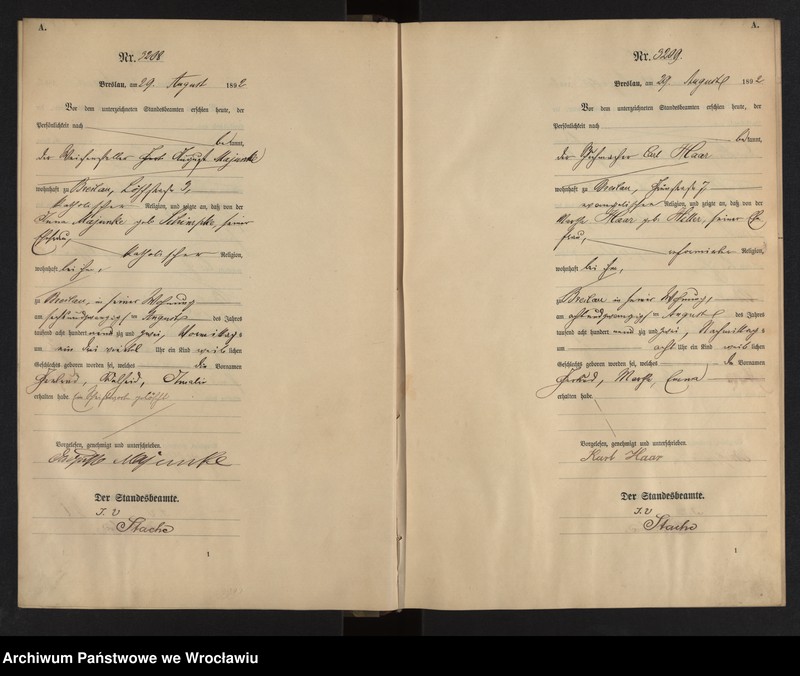 A.
Nr. 3208
Breslau, am 29. August 1892
Vor dem unterzeichneten Standesbeamten erschien heute, der
Persönlichkeit nach
bekannt,
der Weichensteller August Majunke
wohnhaft zu Breslau, 3,
katholischer Religion, und zeigte an, daß von der
Majunke geb. seiner
Ehefrau,
katholischer Religion,
wohnhaft bei ihm,
zu Breslau, in seiner Wohnung
am sechsundzwanzigsten August des Jahres
tausend acht hundert neunzig und zwei, Vormittags
um ein drei viertel Uhr ein Kind weiblichen
Geschlechts geboren worden sei, welches die Vornamen
Amalie
erhalten habe.
Vorgelesen, genehmigt und unterschrieben.
August Majunke
Der Standesbeamte.
I. V
Stache
1
A.
Nr. 3209.
Breslau, am 29. August 1892
Vor dem unterzeichneten Standesbeamten erschien heute, der
Persönlichkeit nach
bekannt,
der Carl Haar
wohnhaft zu Breslau, 7
evangelischer Religion, und zeigte an, daß von der
Martha Haar geb. Heller, seiner Ehe
frau,
reformierter Religion,
wohnhaft bei ihm,
zu Breslau in seiner Wohnung,
am achtundzwanzigsten August des Jahres
tausend acht hundert neunzig und zwei, Nachmittags
um acht Uhr ein Kind weiblichen
Geschlechts geboren worden sei, welches die Vornamen
Martha, Emma
erhalten habe.
Vorgelesen, genehmigt und unterschrieben.
Karl Haar
Der Standesbeamte.
I. V
Stache
1
Archiwum Państwowe we Wrocławiu